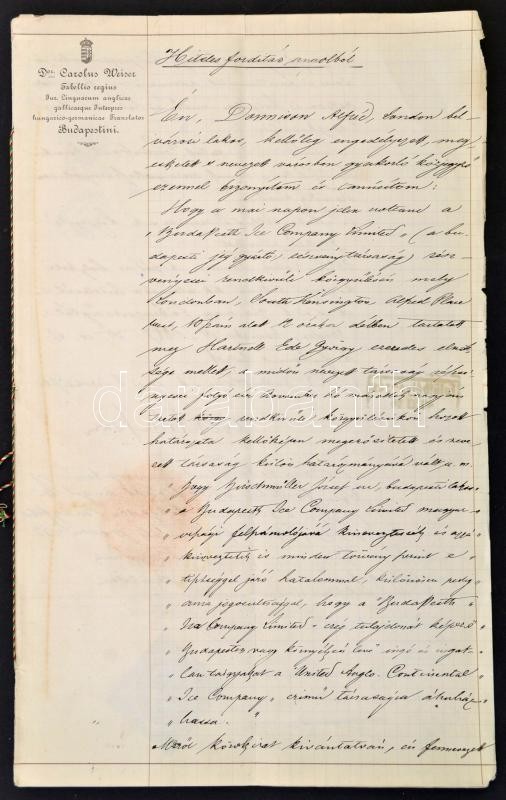 Dor. Carolus Weiser
Tabellio regius
Jur. Linguarum anglicae
gallicaeque Interpres
hungarico-germanicae Translator
Budapestini.
Hiteles fordítás angolból
Én, Dennison Alfréd, London bel-
városi lakos, kellőleg engedélyezett, meg-
esketett s nevezett városban gyakorló közjegyző
ezennel bizonyítom és tanúsítom:
Hogy a mai napon jelen voltam a
"BudaPesth Ice Company Limited" (a bu-
dapesti jéggyártó részvénytársaság) rész-
vényesei rendkívüli közgyűlésén mely
Londonban, South Kensington Alfred Place
West, 10 szám alatt 12 órakor délben tartatott
meg Hartnell Ede György ezredes elnök-
sége mellett, a midőn nevezett társaság
folyó évi
tartott rendkívüli közgyűlésükön hozott
határozata kellőképen megerősíttetett és neve-
zett társaság külön határozmányává vált u. m.
"Hogy József úr, budapesti lakos
" a Budapesth Ice Company Limited magyar-
" felszámolójává kineveztessék és
" kineveztetik és minden törvény szerint e
" tisztséggel járó hatalommal, különösen pedig
" ama jogosultsággal, hogy a "BudaPesth
" Ice Company Limited" czég tulajdonát képező
" Budapesten vagy környékén levő ingó és ingat-
" lan tárgyakat a "United Anglo Continental
" Ice Company" czimű társaságra átruház-
" hassa. "
Miről közokirat kivántatván, én fennevezett